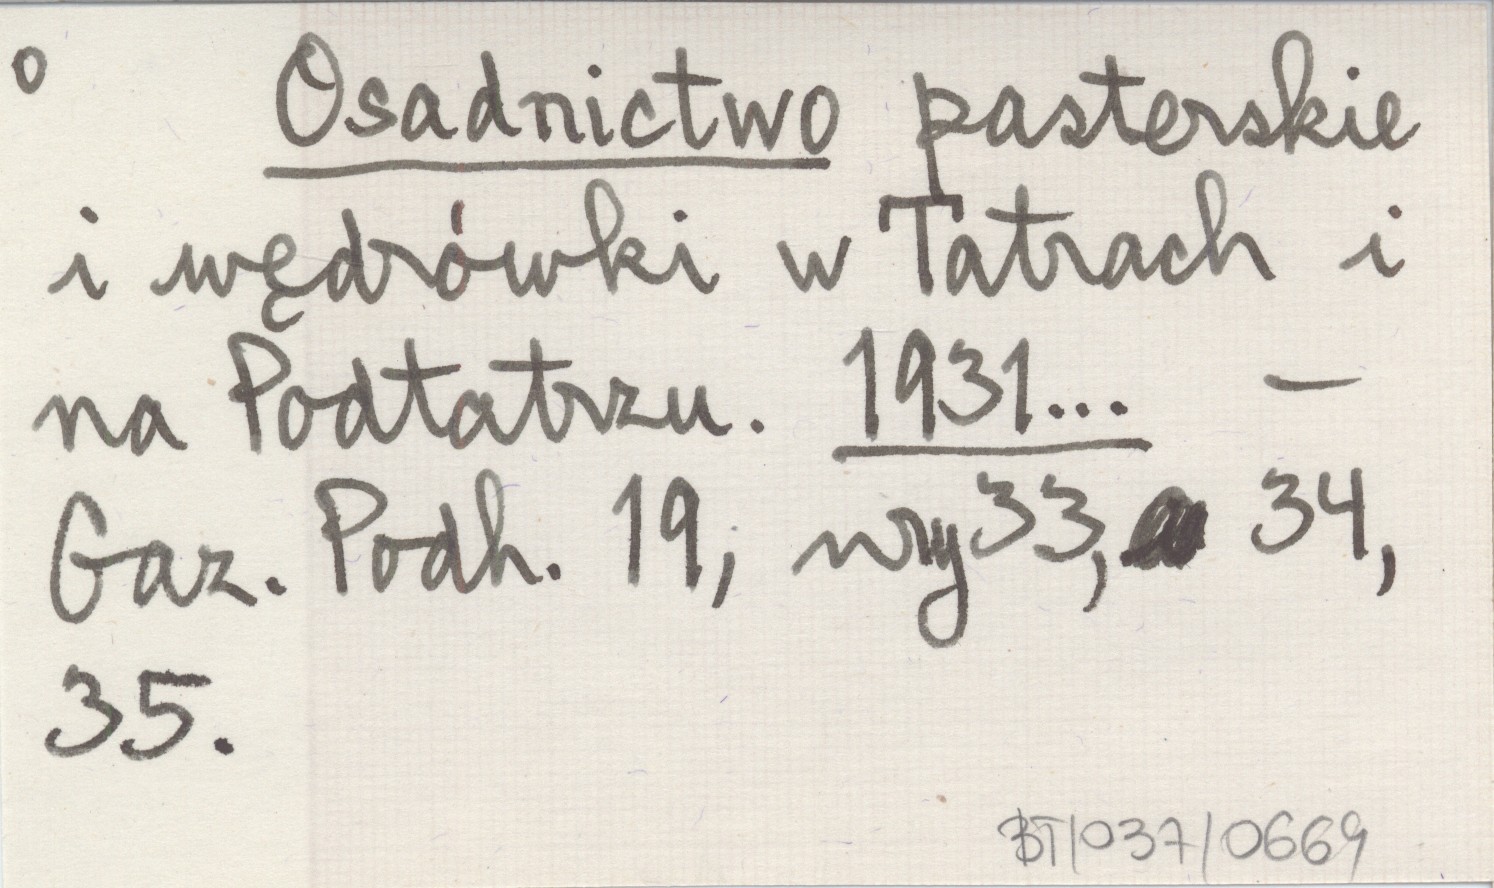 o Osadnictwo pasterskie
i wędrówki w Tatrach i
na Podtatrzu. 1931... —
Gaz. Podh. 19, nry 33, 34,
35.
BT/037/0669